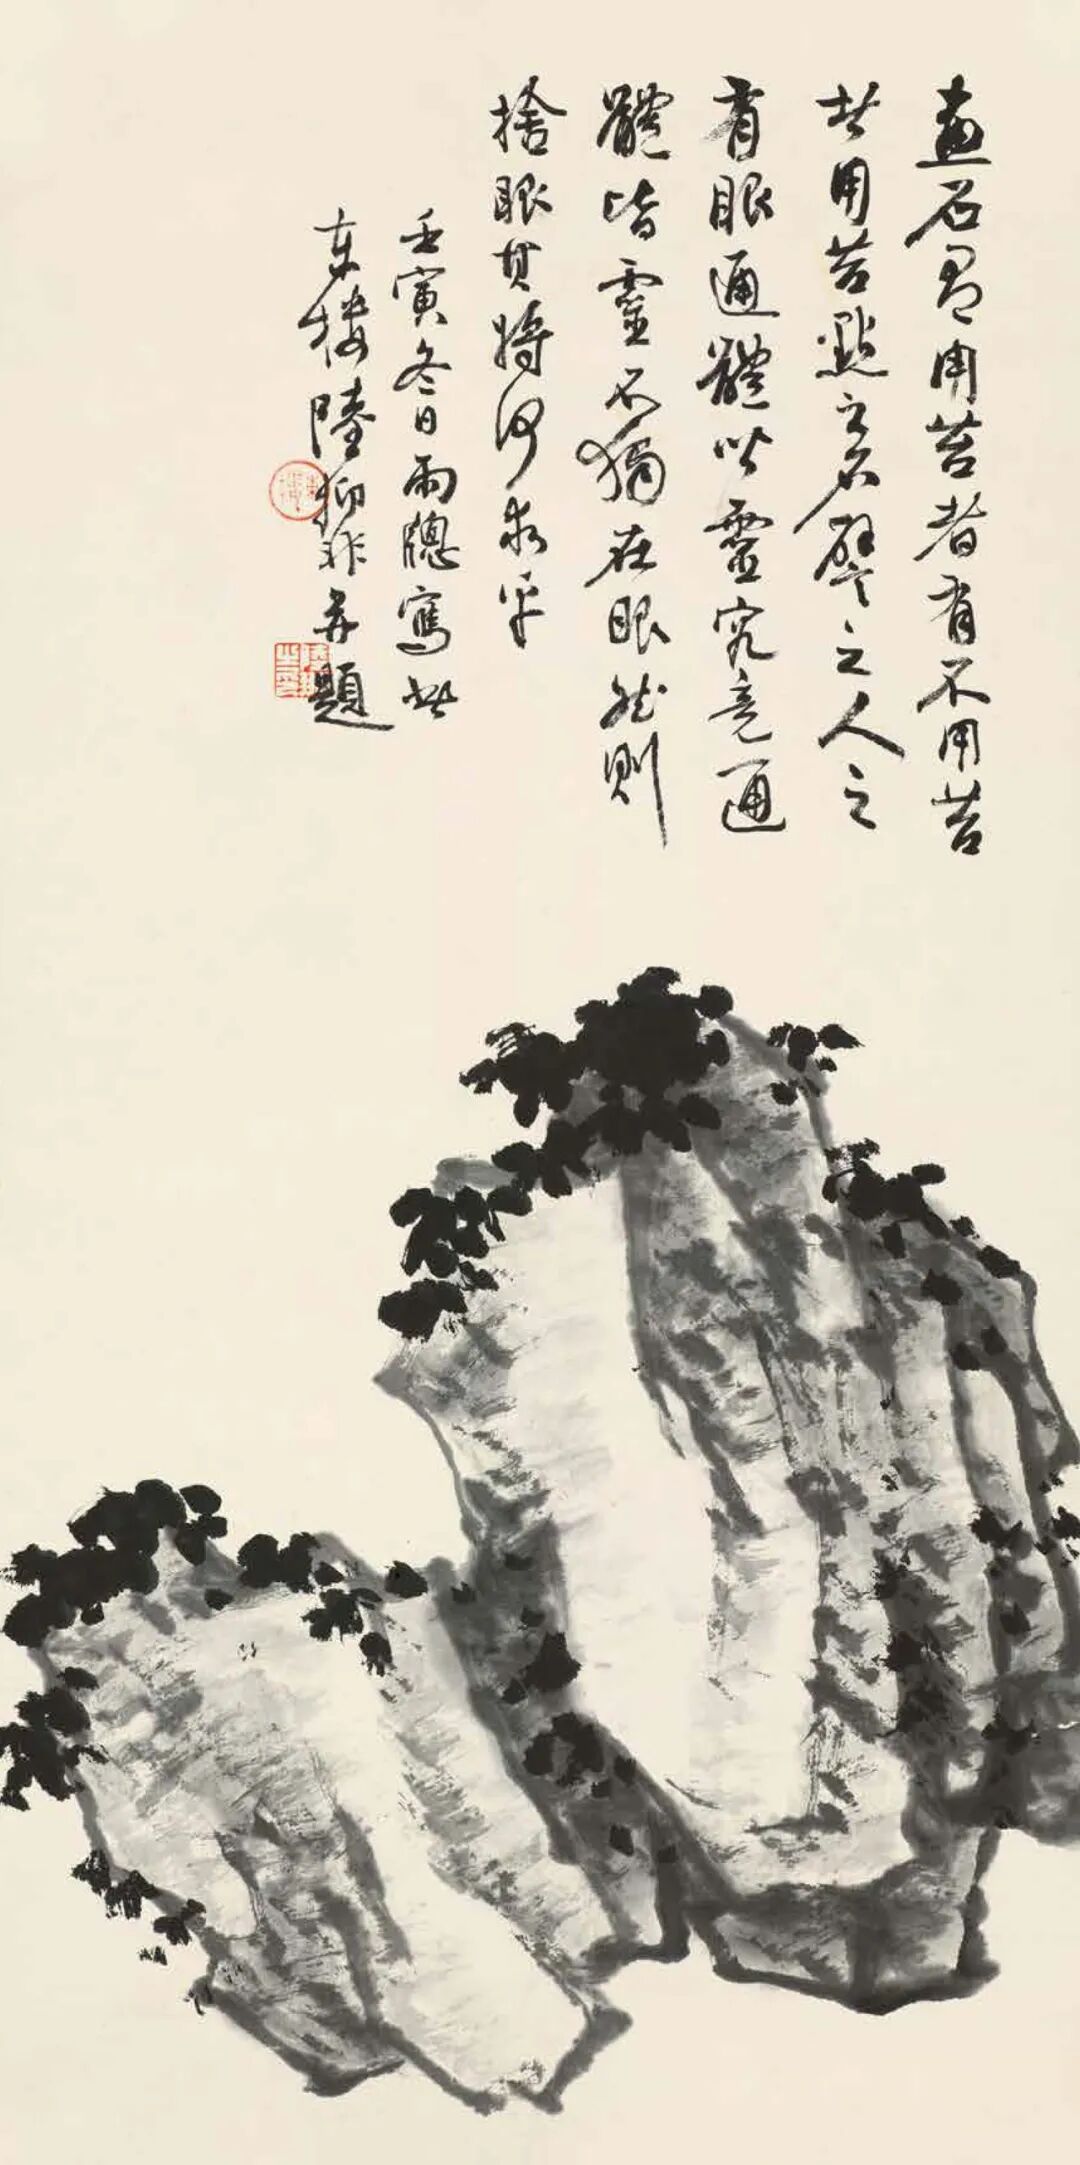 畫石有用苔者有不用苔
者用苔點之石譬之人之
有眼通體皆靈究竟通
體皆靈不獨在眼然則
捨眼其將何求乎
壬寅冬日雨牕寫於
東樓陸抑非並題